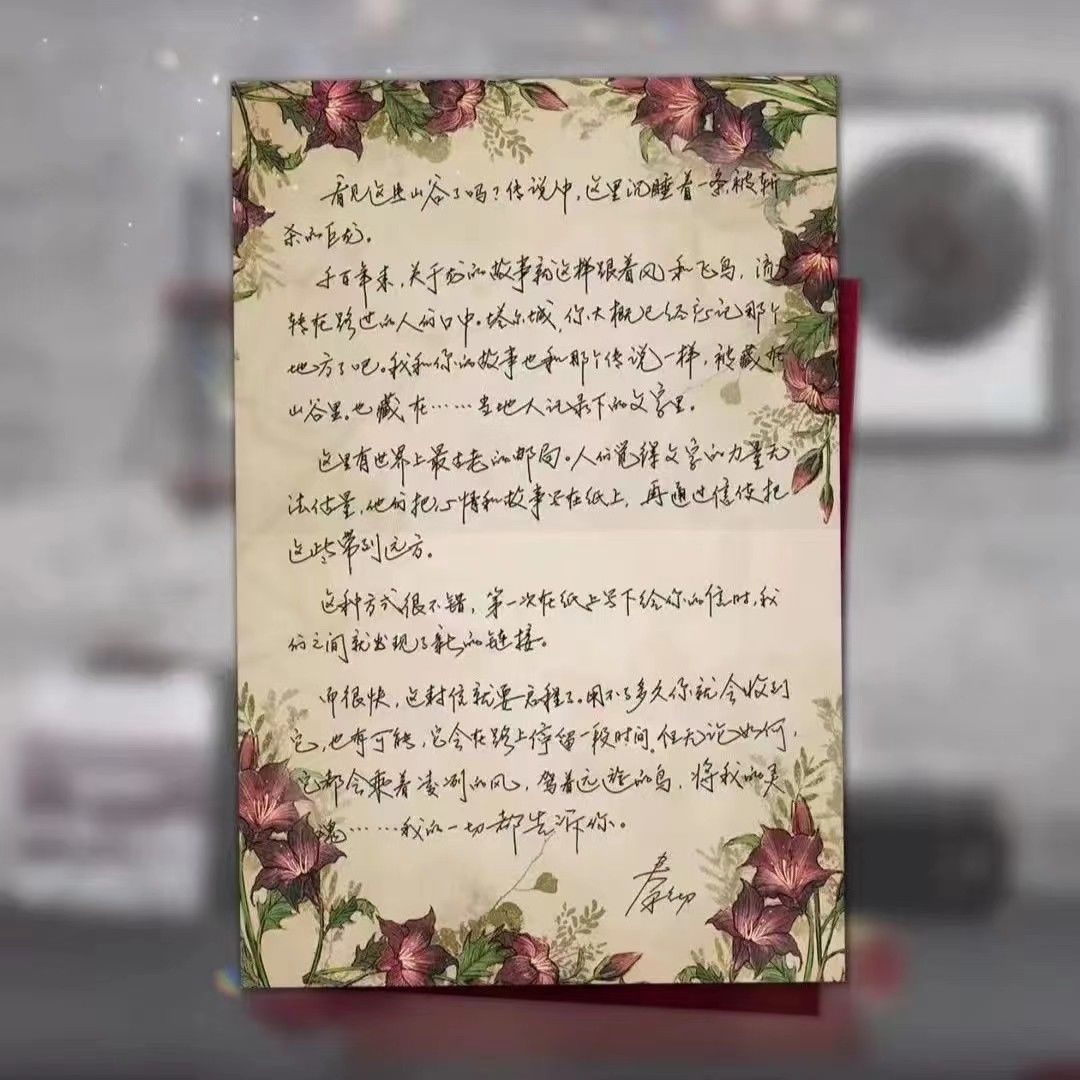 看见这些山谷了吗？传说中，这里沉睡着一条被斩
杀的巨龙。
千百年来，关于龙的故事就这样跟着风和飞鸟，流
转在路过的人们口中。塔尔城，你大概已经忘记那个
地方了吧。我和你的故事也和那个传说一样，被藏在
山谷里。也藏在……当地人记录下的文字里。
这里有世界上最古老的邮局。人们觉得文字的力量无
法估量，他们把心情和故事写在纸上，再通过信使把
这些带到远方。
这种方式很不错，第一次在纸上写下给你的信时，我
们之间就出现了新的链接。
很快，这封信就要启程了。用不了多久你就会收到
它，也有可能，它会在路上停留一段时间。但无论如何，
它都会乘着凌冽的风，驾着远途的鸟，将我的灵
魂……我的一切都告诉你。
秦彻